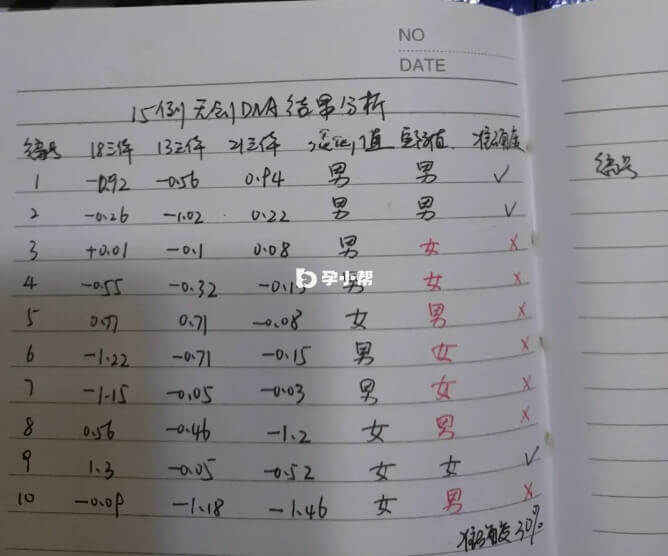 NO
DATE
15例无创DNA结果分析
编号 18三体 13三体 21三体 理论值 实际值 准确度
1 -0.92 -0.56 0.94 男 男 ✓
2 -0.26 -1.02 0.22 男 男 ✓
3 +0.01 -0.1 0.08 男 女 ×
4 -0.55 -0.32 -0.15 男 女 ×
5 0.71 0.71 -0.08 女 男 ×
6 -1.22 -0.71 -0.15 男 女 ×
7 -1.15 -0.05 -0.03 男 女 ×
8 0.56 -0.46 -1.2 女 男 ×
9 1.3 -0.05 -0.52 女 女 ✓
10 -0.09 -1.18 -1.46 女 男 ×
准确度30%
编号
孕小帮